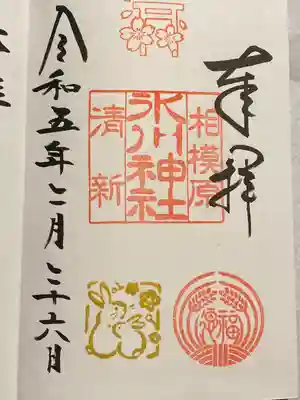 奉拝
相模原
氷川神社
清新
福
令和五年二月二十六日